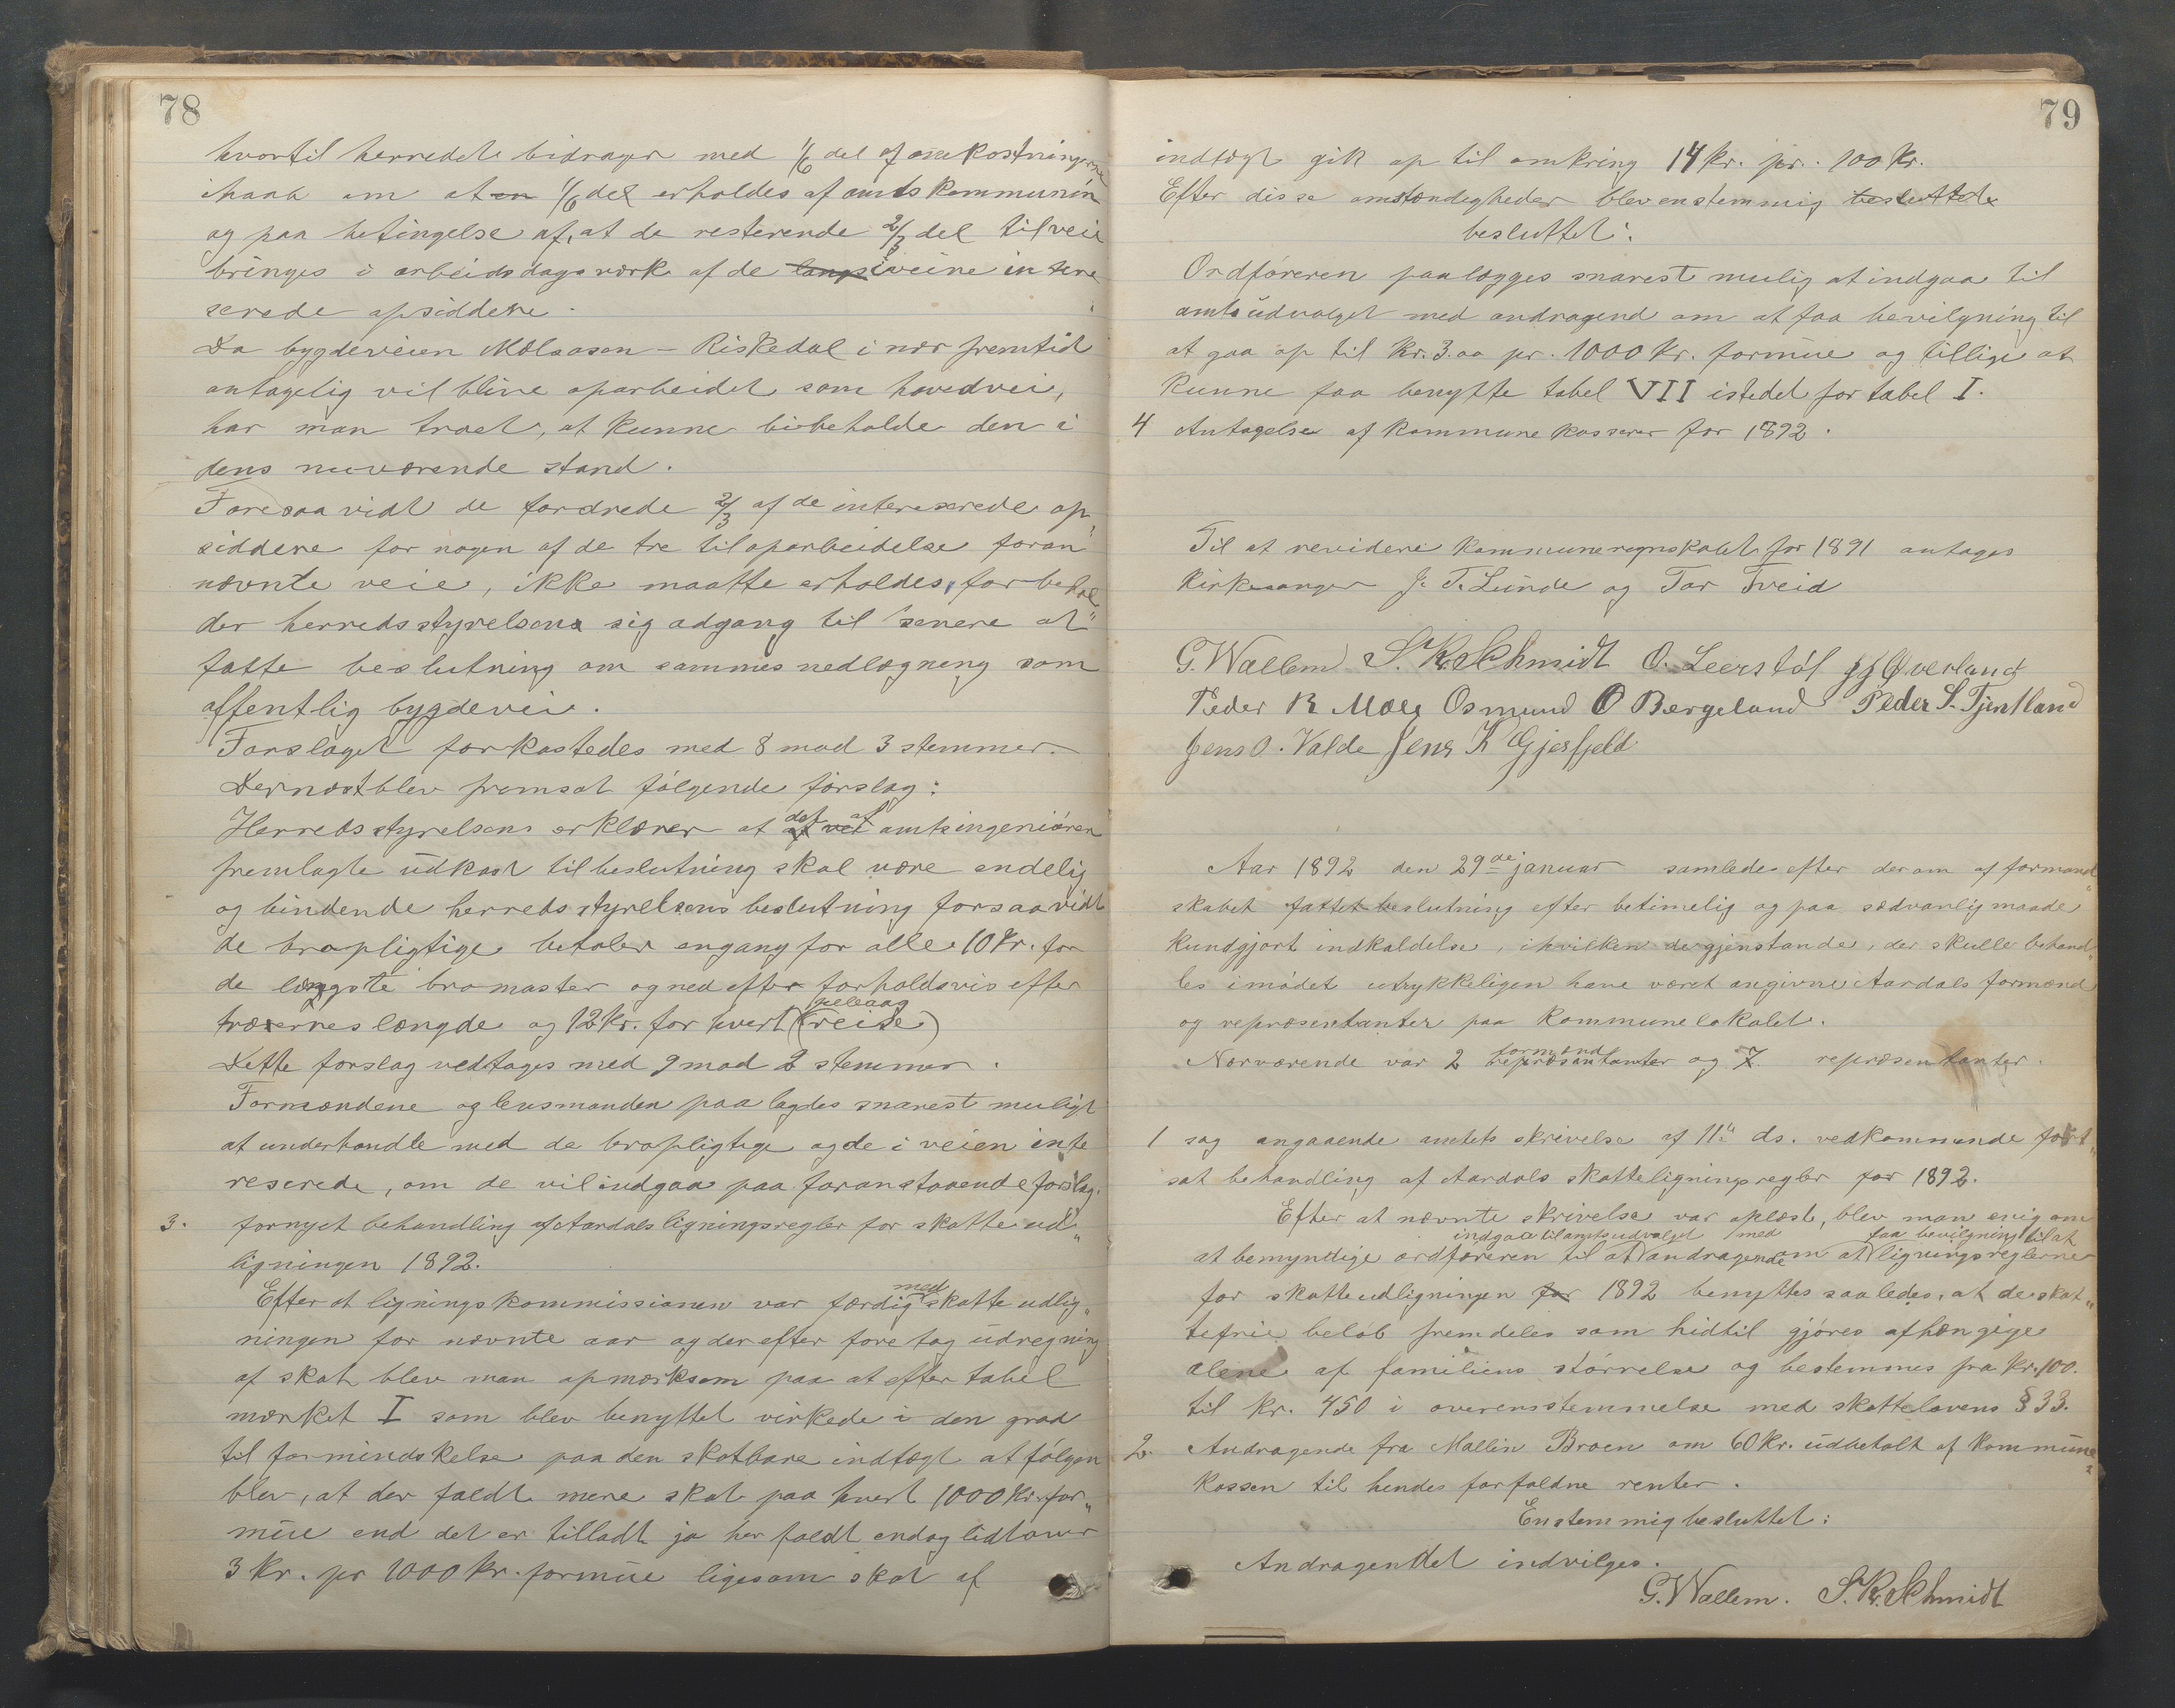 78
hvortil herredet bidrager med 1/6 del af omkostningerne
i haab om at en 1/6 del erholdes af amtskommunen
og paa betingelse af, at de resterende 2/3 del tilveie
bringes i arbeidsdagsværk af de langs i veine intere
serede opsiddere.
Da bygdeveien Mælaasen – Riskedal i nær fremtid
antagelig vil blive oparbeidet som hovedvei,
har man troet, at kunne bibeholde den i
dens nuværende stand.
Foresaavidt de fordrede 2/3 af de intereserede op„
siddere for nogen af de tre til oparbeidelse foran„
nævnte veie, ikke maatte erholdes, forbehol„
der herredsstyrelsens sig adgang til senere at
fatte beslutning om sammes nedlægning som
offentlig bygdevei.
Forslaget forkastedes med 8 mod 3 stemmer.
Dernæst blev fremsat følgende forslag:
Herredsstyrelsens erklærer at det af amtsingeniøren
fremlagte udkast til beslutning skal være endelig
og bindende herredsstyrelsens beslutning forsaavidt
de bropligtige betaler engang for alle 10 kr. for
de længste bromaster og nedefter forholdsvis efter
træernes længde og 12 kr. for hvert gelaag (reise)
Dette forslag vedtages med 9 mod 2 stemmer.
Formændene og lensmanden paalagdes snarest muligt
at underhandle med de bropligtige og de i veien inte
reserede, om de vil indgaa paa foranstaaende forslag.
3. fornyet behandling af Aardals ligningsregler for skatteud„
ligningen 1892.
Efter at ligningskommissionen var færdig med skatteudlig„
ningen for nævnte aar og derefter foretog udregning
af skat blev man opmærksom paa at efter tabel
mærket I som blev benyttet virkede i den grad
til formindskelse paa den skatbare indtægt at følgen
blev, at der faldt mere skat paa hvert 1000 kr. for„
mue end det er tilladt ja her faldt endog lidt over
3 kr. pr 1000 kr. formue ligesom skat af
79
indtægt gik op til omkring 14 kr. pr. 100 kr.
Efter disse omstændigheder blev enstemmig besluttet
besluttet:
Ordføreren paalægges snarest mulig at indgaa til
amtsudvalget med andragend om at faa bevilgning til
at gaa op til kr. 3.00 pr. 1000 kr. formue og tillige at
kunne faa benytte tabel VII istedet for tabel I.
4 Antagelse af kommunekasserer for 1892.
Til at revidere kommuneregnskabet for 1891 antages
Kirkesanger J. T. Lunde og Tor Tveid
G. Wallem S. K. Schmidt O. Leerstøl JJ Øverland
Peder R Mæle Osmund O Bergeland Peder S. Tjentland
Jens O. Valde Jens K Gjesfjeld
Aar 1892 den 29de januar samledes efter derom af formand„
skabet fattet beslutning efter betimelig og paa sædvanlig maade
kundgjort indkaldelse, i hvilken de gjenstande, der skulle behand„
les i mødet utrykkeligen have været angivne Aardals formænd
og repræsentanter paa kommunelokalet.
Nærværende var 2 formænd repræsentanter og 7 repræsentanter.
1 sag angaaende amtets skrivelse af 11te ds. vedkommende fort„
sat behandling af Aardals skatteligningsregler for 1892.
Efter at nævnte skrivelse var oplæst, blev man enig om
indgaa til amtsudvalget med faa bevilgning til at
at bemyndige ordføreren til at andragende om at ligningsreglerne
for skatteudligningen for 1892 benyttes saaledes, at de skat„
tefrie beløb fremdeles som hidtil gjøres afhængige
alene af familiens størrelse og bestemmes fra kr. 100.
til kr. 450 i overensstemmelse med skattelovens § 33.
2. Andragende fra Mallin Broen om 60 kr. udbetalt af kommune„
kassen til hendes forfaldne renter.
Enstemmig besluttet:
Andragendet indvilges.
G. Wallem. S. K. Schmidt